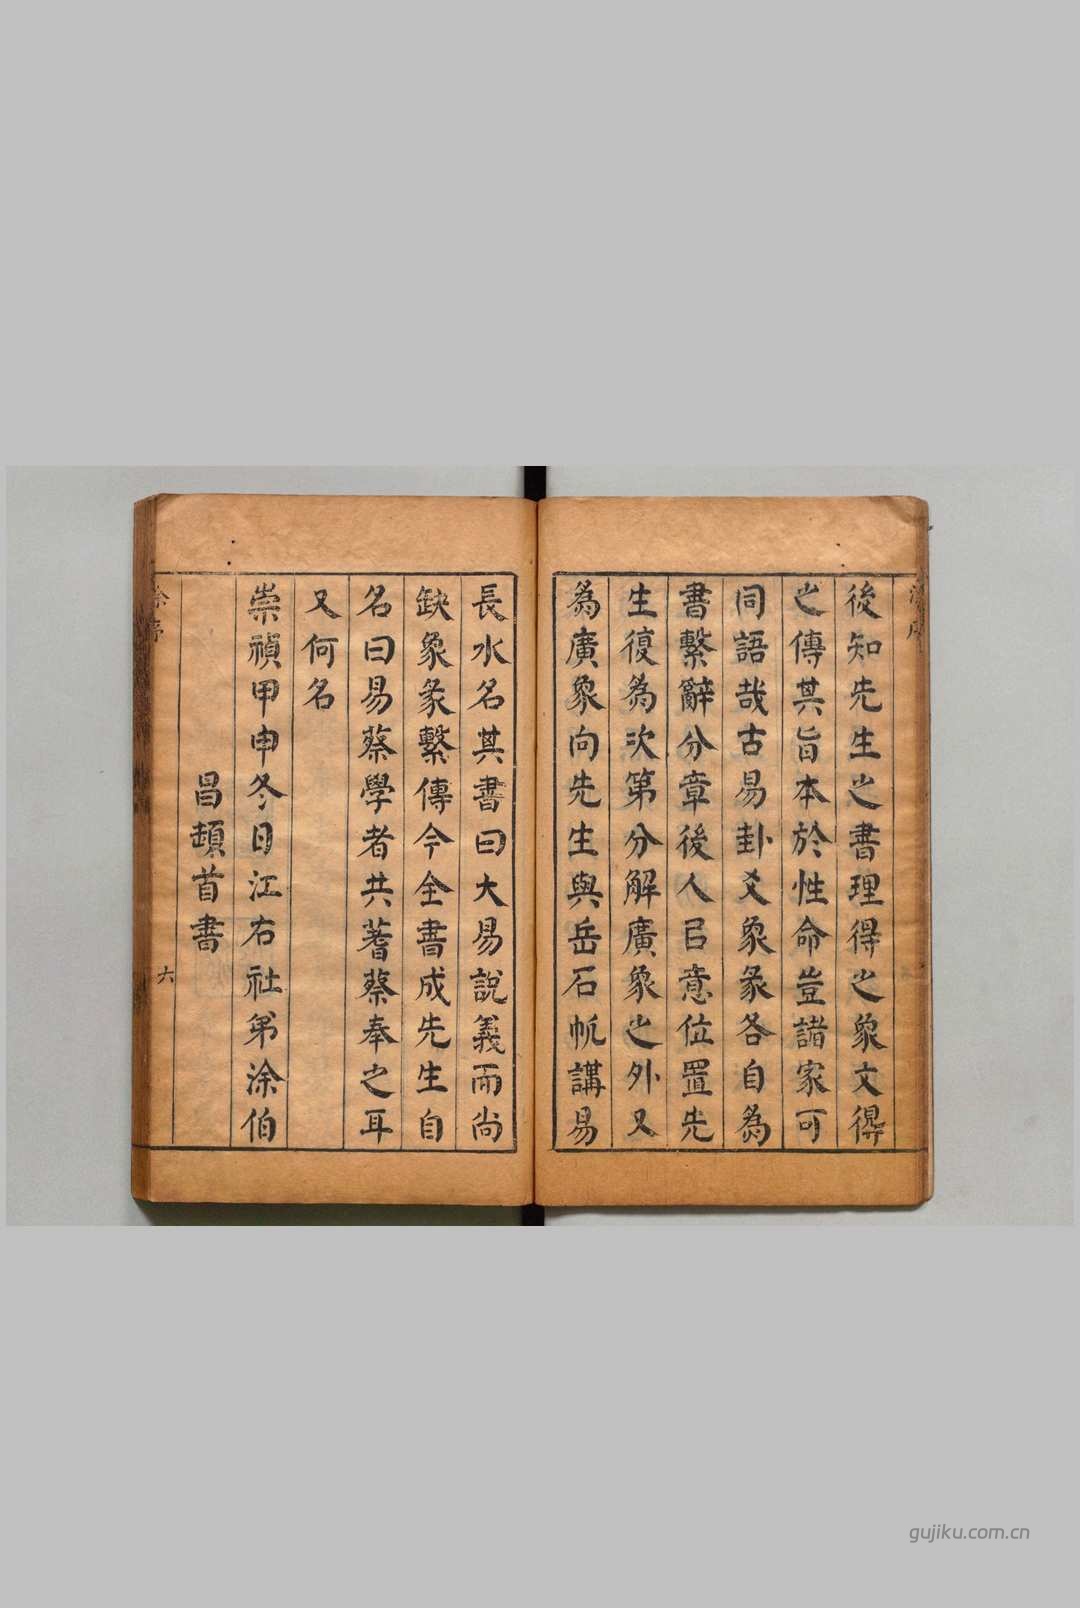 後知先生之書理得之象文得
之傳其旨本於性命豈諸家可
同語哉古易卦爻象彖各自為
書繫辭分章後人㠯意位置先
生復為次第分解廣象之外又
為廣象向先生與岳石帆講易
長水名其書曰大易說義而尚
缺象彖繫傳今全書成先生自
名曰易蔡學者共蓍蔡奉之耳
又何名
崇禎甲申冬日江右社弟涂伯
昌頓首書
涂序
六
gujiku.com.cn